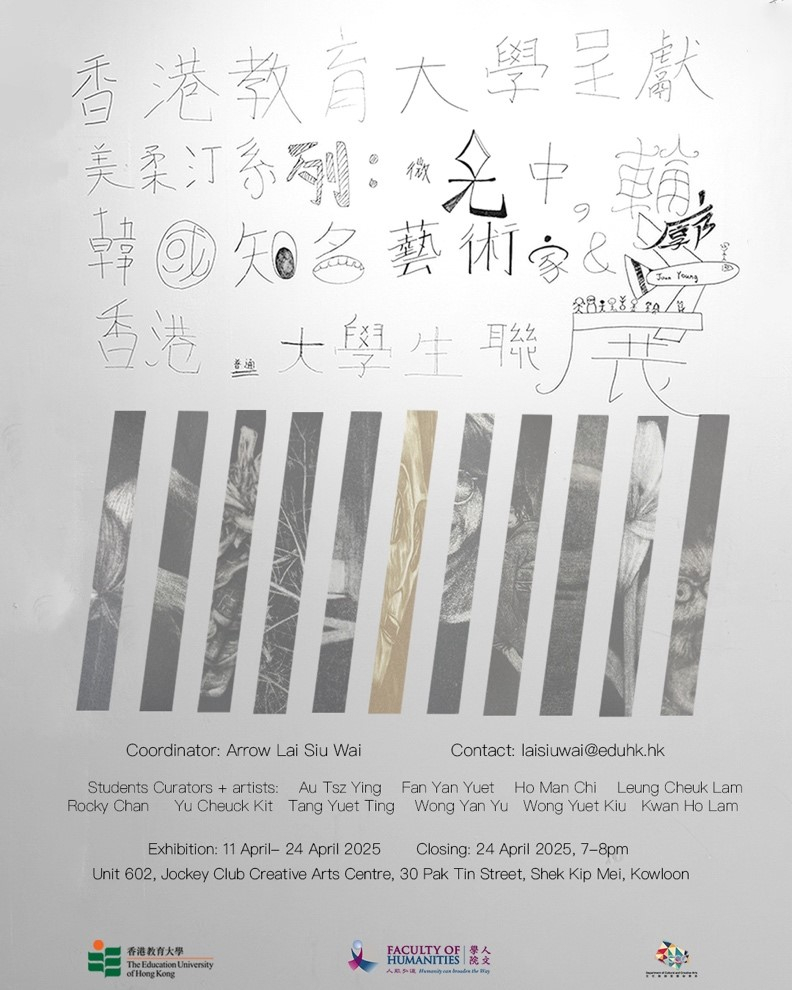 香港教育大學呈獻
美柔汀系列：微光中，輪廓
韓國知名藝術家 &
Joun Young
香港普通大學生聯展
Coordinator: Arrow Lai Siu Wai Contact: laisiuwai@eduhk.hk
Students Curators + artists: Au Tsz Ying Fan Yan Yuet Ho Man Chi Leung Cheuk Lam
Rocky Chan Yu Cheuck Kit Tang Yuet Ting Wong Yan Yu Wong Yuet Kiu Kwan Ho Lam
Exhibition: 11 April– 24 April 2025 Closing: 24 April 2025, 7–8pm
Unit 602, Jockey Club Creative Arts Centre, 30 Pak Tin Street, Shek Kip Mei, Kowloon
香港教育大學
The Education University
of Hong Kong
FACULTY OF
HUMANITIES
人文
學院
人文弘道 Humanity can broaden the Way
Department of Cultural and Creative Arts